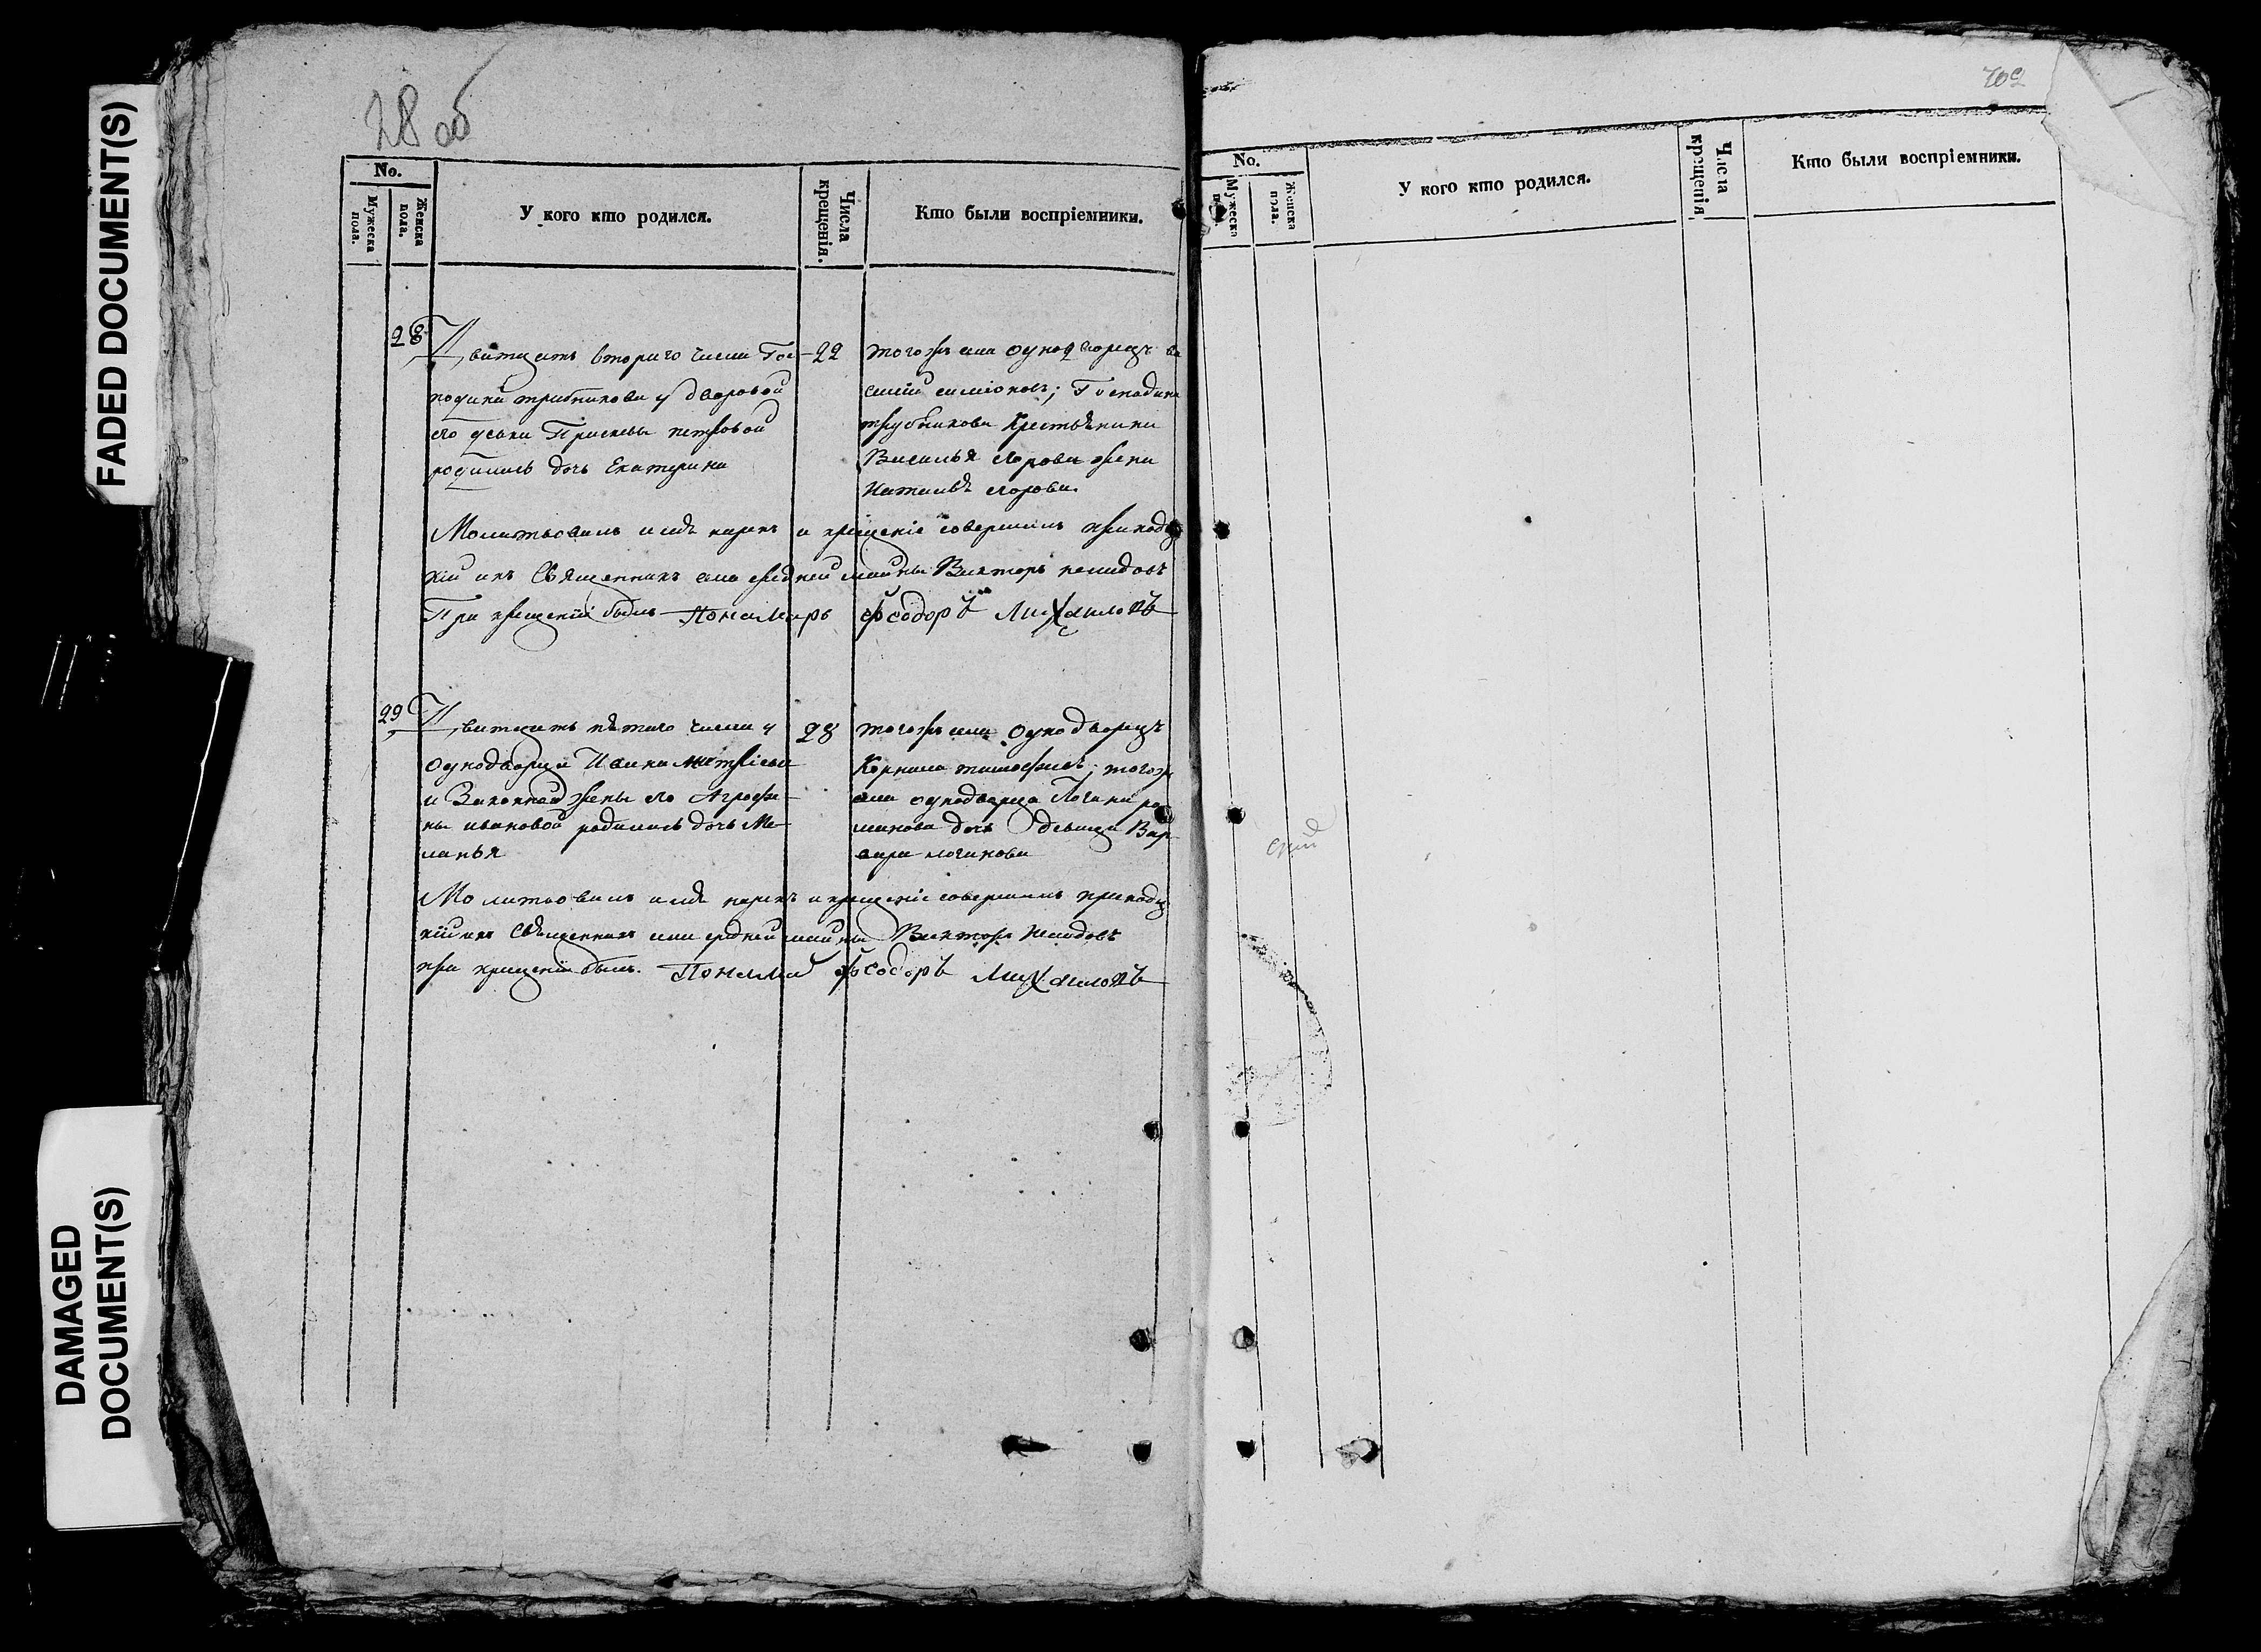 FADED DOCUMENT(S)
DAMAGED
DOCUMENT(S)
28 об
No.
Мужеска пола.
Женска пола.
У кого кто родился.
Числа крещенія.
Кто были воспріемники.
28
Дватцать втораго числа Гос-
подина трубникова у дворовой
его девки Прасковьи петровой
родилась дочь Екатерина
22
тогожъ села однодворецъ ва
силій симіоновъ; Господина
трубникова Крестьянина
Василья жена
Наталья
Молитвовалъ имя нарекъ и крещеніе совершилъ приход
кій ихъ Священникъ села средней Викторъ
При крещеніи былъ Пономарь Феодоръ Михайловъ
29
Дватцать пятаго числа у
однодворца Ивана
и Законной жены его Агрофе-
ны ивановой родилась дочь Ме-
ланья
28
тогожъ села однодворецъ
Корнила тимофеевъ; тогожъ
села однодворца Логина ро
манова дочь девица Вар-
вара логинова
Молитвовалъ имя нарекъ и крещеніе совершилъ приход
кій ихъ Священникъ села средней Викторъ
при крещеніи былъ. Пономарь Феодоръ Михайловъ
702
No.
Мужеска
Женска пола.
У кого кто родился.
Числа крещенія
Кто были воспріемники.